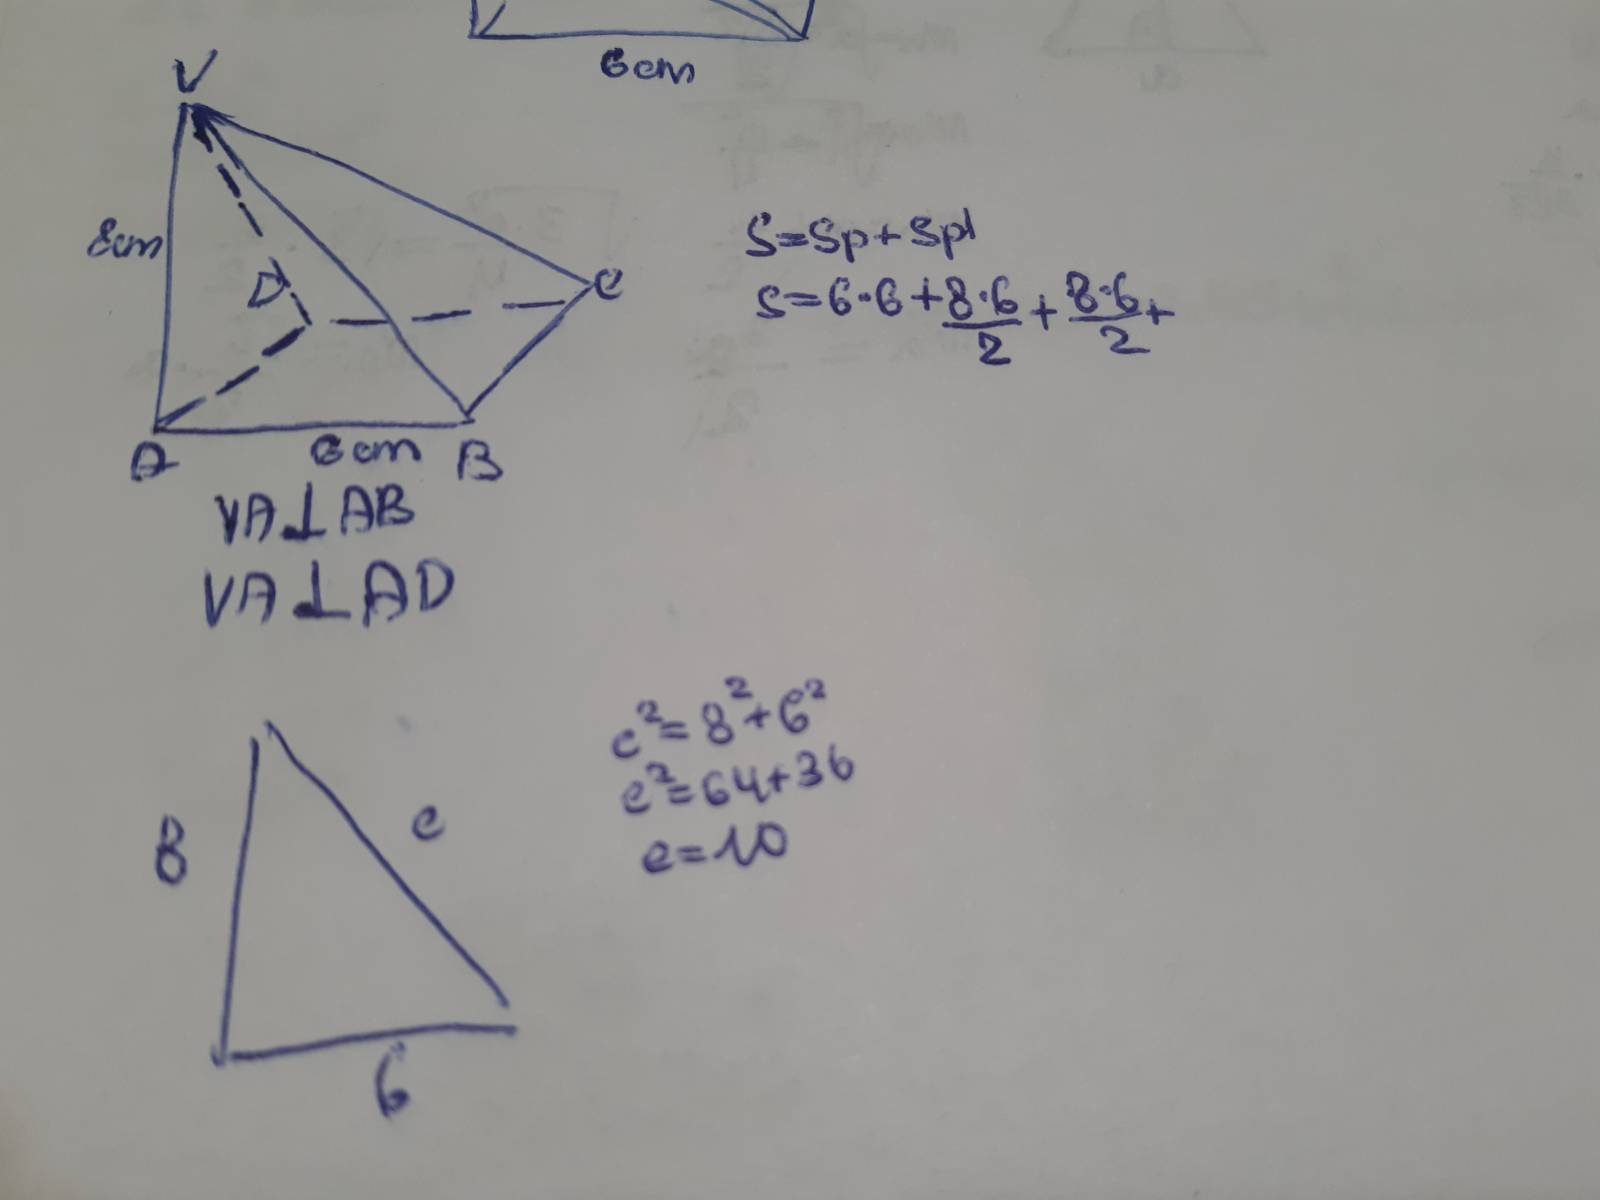 6cm
V
8cm
D
C
A
6cm
B
VA⊥AB
VA⊥AD
S=Sp+Spb
S=6·6+8·6/2+8·6/2+
8
c
6
c²=8²+6²
c²=64+36
c=10